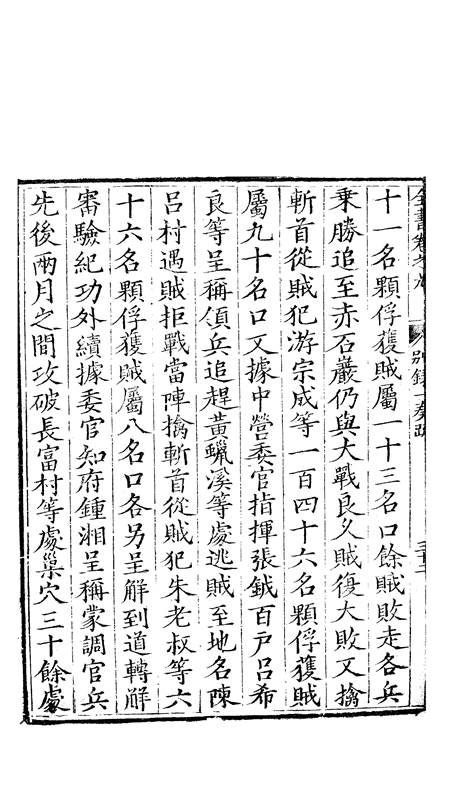 全書卷之九 別錄一奏疏
十一名顆俘獲賊屬一十三名口餘賊敗走各兵
乗勝追至赤石巖仍與大戰良久賊復大敗又擒
斬首從賊犯游宗成等一百四十六名顆俘獲賊
屬九十名口又據中營委官指揮張鉞百戸呂希
良等呈稱領兵追趕黄蠟溪等處逃賊至地名陳
呂村遇賊拒戰當陣擒斬首從賊犯朱老叔等六
十六名顆俘獲賊屬八名口各另呈解到道轉解
審驗紀功外續據委官知府鍾湘呈稱蒙調官兵
先後兩月之間攻破長富村等處巢穴三十餘處